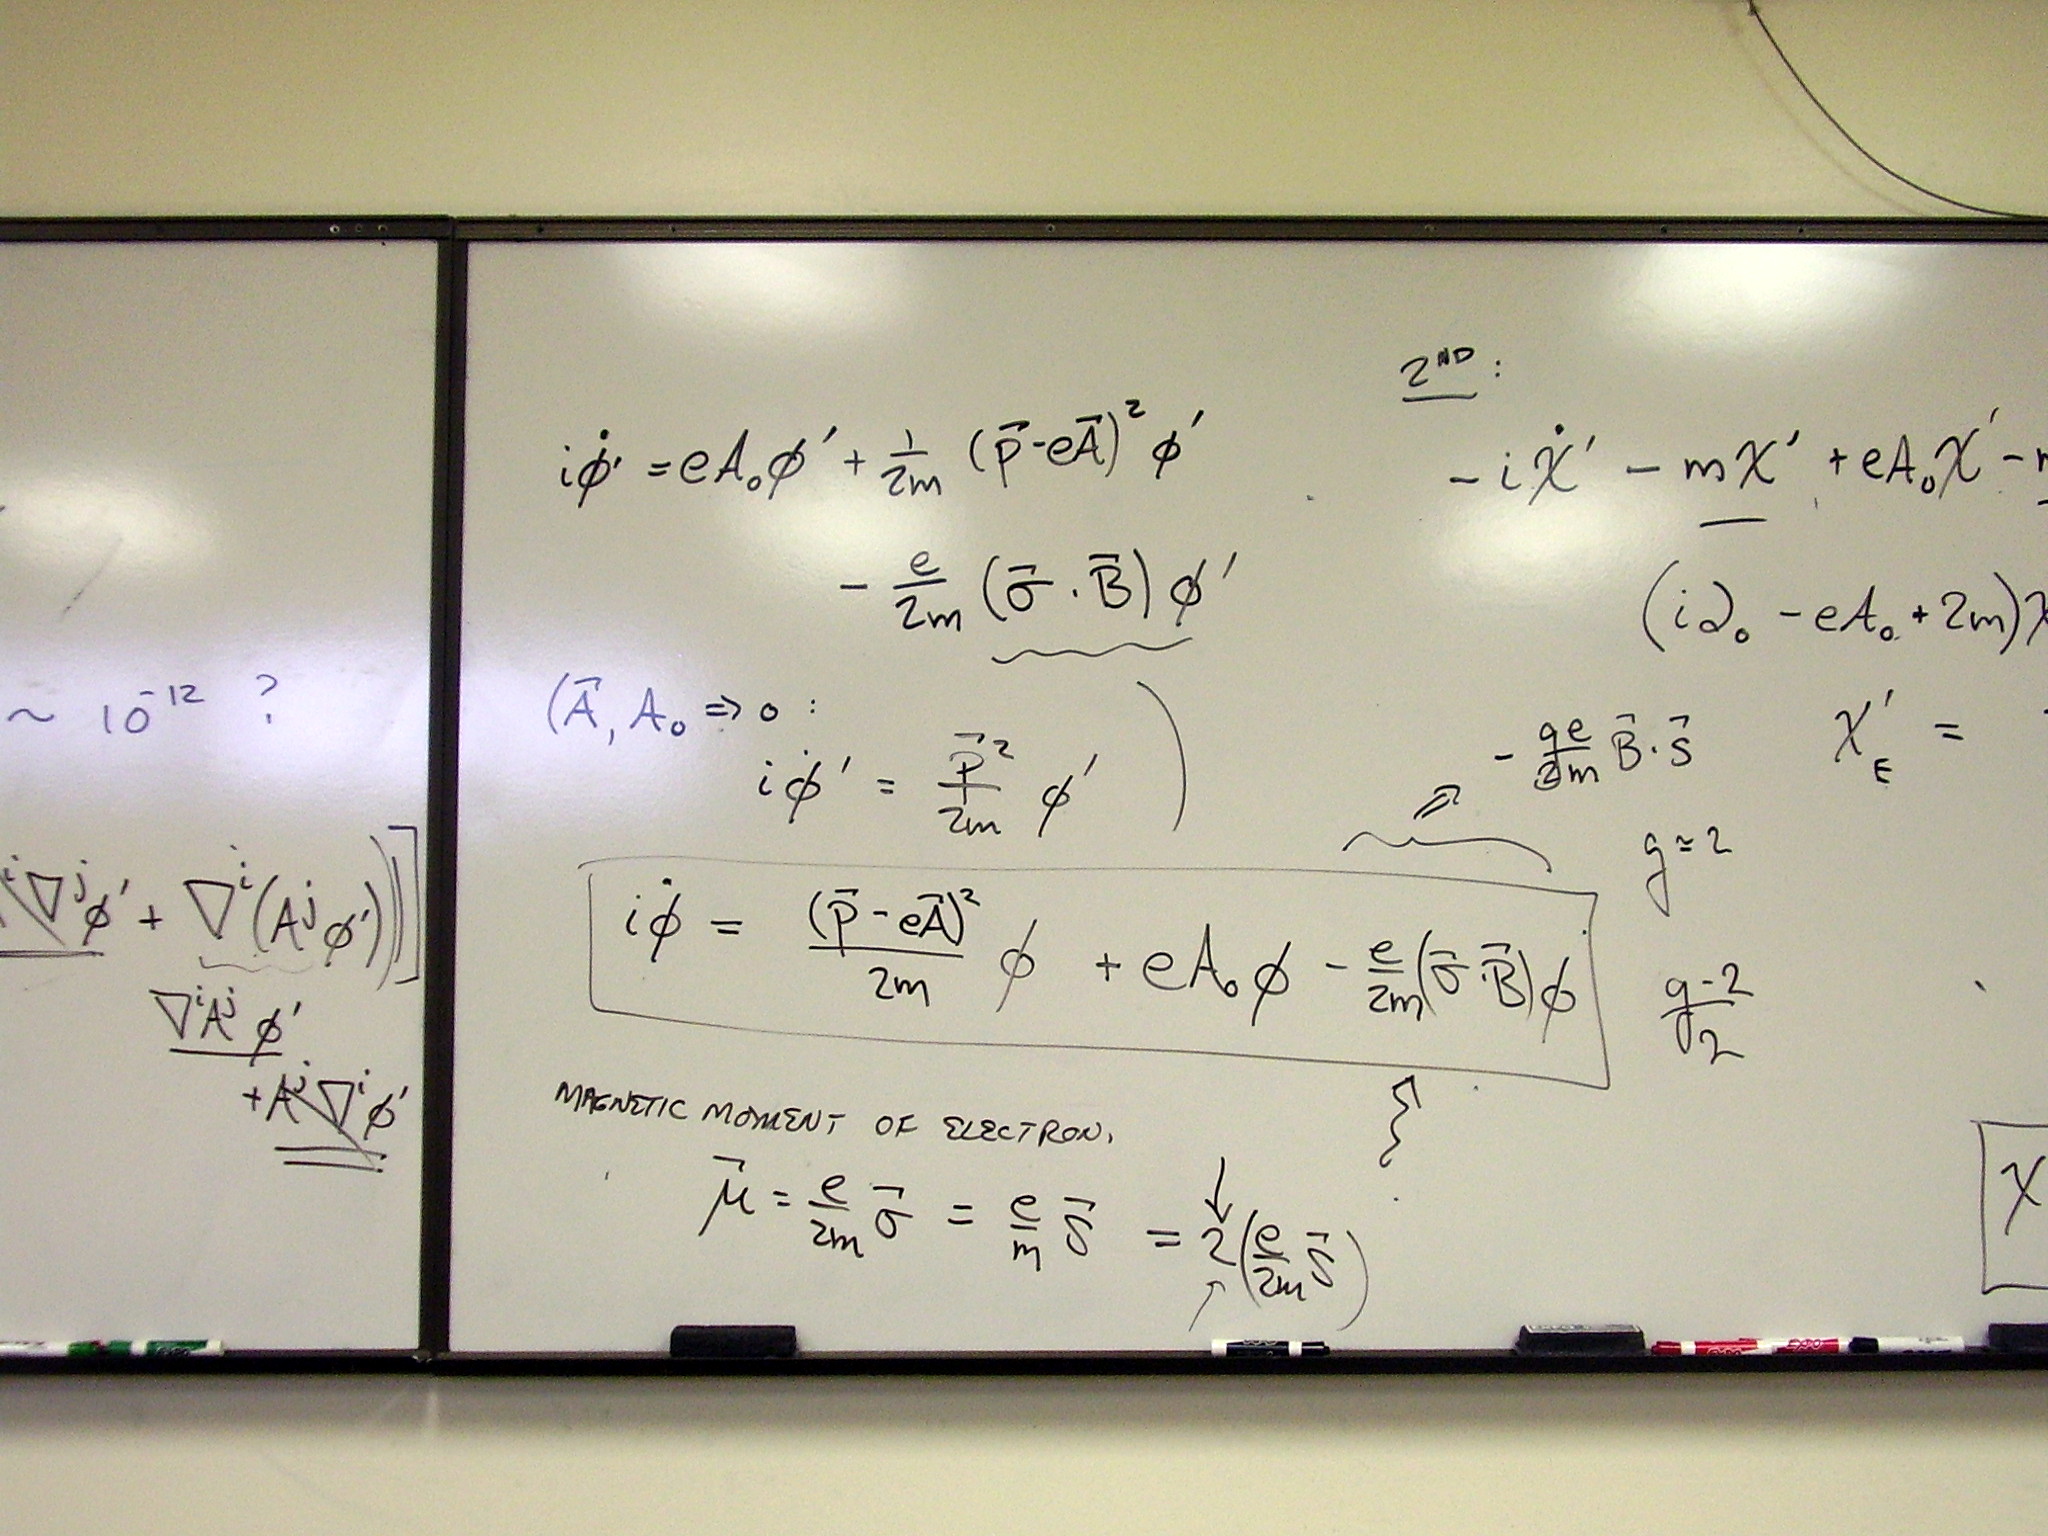 ~ 10⁻¹² ?
∇ʲφ′ + ∇ⁱ(Aʲφ′))]
∇ⁱAʲ φ′
+Aʲ∇ⁱφ′
iφ̇′ = eA₀φ′ + 1/2m (p⃗ - eA⃗)² φ′
- e/2m (σ⃗ · B⃗) φ′
(A⃗, A₀ ⇒ 0 :
iφ̇′ = p⃗²/2m φ′ )
iφ̇ = (p⃗ - eA⃗)²/2m φ + eA₀φ - e/2m (σ⃗·B⃗)φ
MAGNETIC MOMENT OF ELECTRON.
μ⃗ = e/2m σ⃗ = e/m S⃗ = 2(e/2m S⃗)
2ND :
- iχ̇′ - mχ′ + eA₀χ′ -
(i∂₀ - eA₀ + 2m)χ
- ge/2m B⃗·S⃗
χ′E =
g ≃ 2
g-2/2
χ